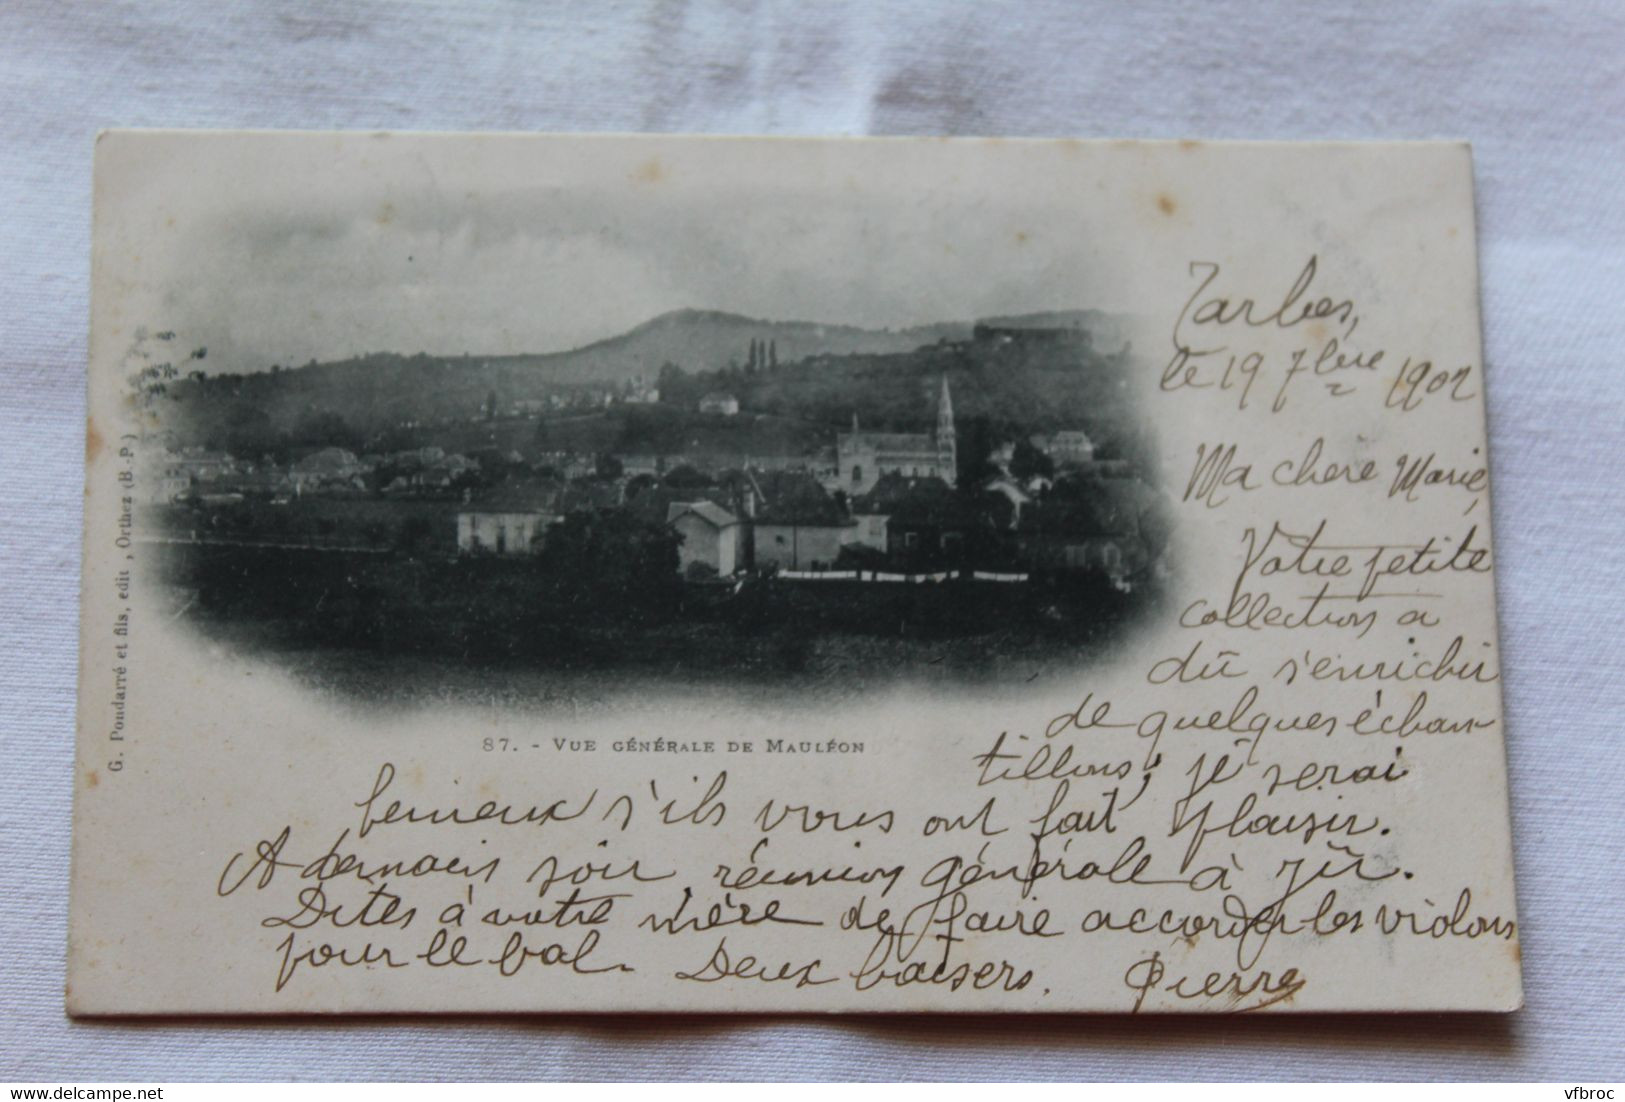 Tarbes,
le 19 7bre 1902
Ma chere Marie,
Votre petite
collection a
dû s'enrichir
de quelques échan
tillons; je serai
heureux s'ils vous ont fait plaisir.
A demain soir réunion générale à
Dites à votre mère de faire accorder les violons
pour le bal. Deux baisers. Pierre
87. - VUE GÉNÉRALE DE MAULÉON
G. Pondarré et fils, edit, Orthez (B.-P.)
delcampe.net
vfbroc